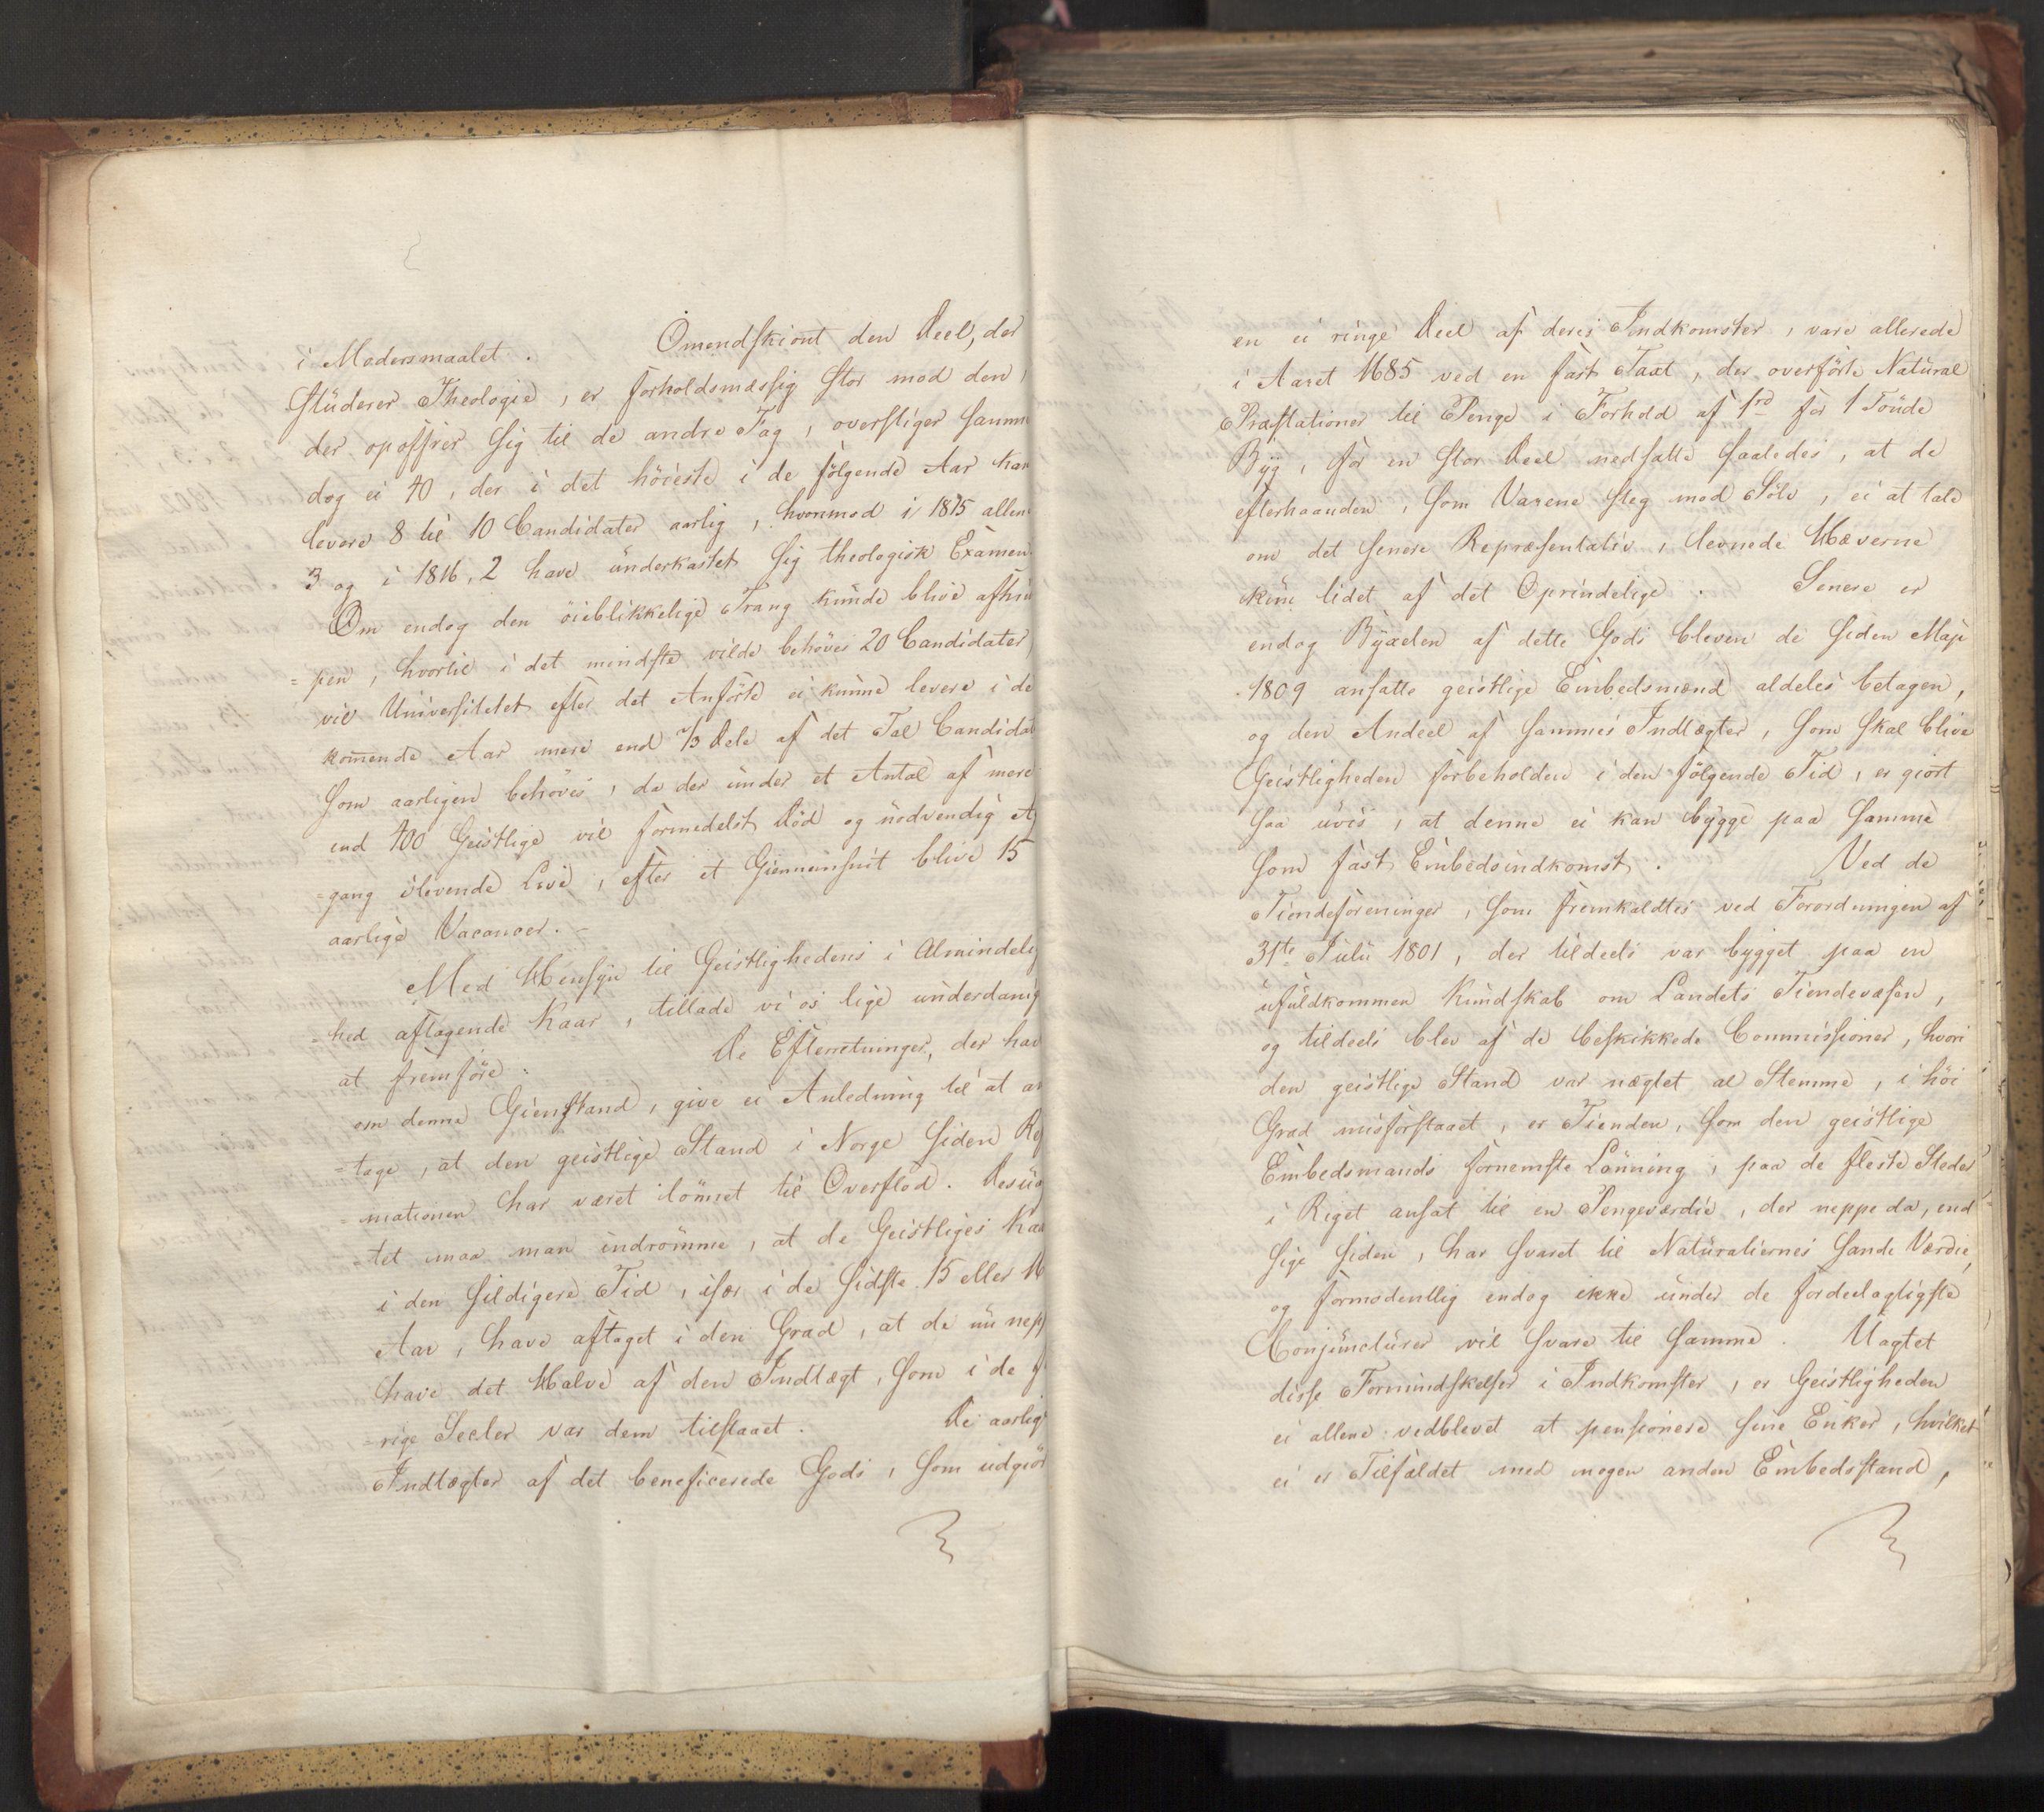 i Modersmaalet. Omendskiönt den Deel, der
studerer Theologie, er forholdsmæssig stor mod den,
der opoffrer sig til de andre Fag, overstiger samme
dog ei 40, der i det höieste i de fölgende Aar kan
levere 8 til 10 Candidater aarlig, hvorimod i 1815 allene
3 og i 1816, 2 have underkastet sig theologisk Examen
Om endog den öieblikkelige Trang kunde blive afhiul
=pen, hvortil i det mindste vilde behöves 20 Candidater,
vil Universitetet efter det Anförte ei kunne levere i de
kom̅ende Aar mere end ⅔ Dele af det Tal Candidat
som aarligen behöves, da der under et Antal af mere
end 400 Geistlige vil formedelst Död og nödvendig Af
=gang i levende Live, efter et Giennemsnit blive 15
aarlige Vacancer. -
Med Hensyn til Geistlighedens i Almindelig
=hed aftagende Kaar, tillade vi os lige underdanig
at fremföre: De Efterretninger, der hav
om denne Gienstand, give ei Anledning til at an
=tage, at den geistlige Stand i Norge siden Ref
=mationen har været lönnet til Overflod. Desuag
tet maa man indrömme, at de Geistliges Kaa
i den sildigere Tid, især i de sidste 15 eller 16
Aar, have aftaget i den Grad, at de nu nep
have det Halve af den Indtægt, som i de f
=rige Secler var dem tilstaaet. De aarlig
Indtægter af det beneficerede Gods, som udgiör
en ei ringe Deel af deres Indkomster, vare allerede
i Aaret 1685 ved en fast Taxt, der overförte Natural
Præstationer til Penge i Forhold af 1rd for 1 Tönde
Byg, for en stor Deel nedsatte saaledes, at de
efterhaanden, som Varene steg mod Sölv, ei at tale
om det senere Repræsentativ, levnede Hæverne
kun lidet af det Oprindelige. Senere er
endog Byxelen af dette Gods bleven de siden Maji
1809 ansatte geistlige Embedsmænd aldeles betagen,
og den Andeel af sammes Indtægter, som skal blive
Geistligheden forbeholden i den fölgende Tid, er giort
saa uvis, at denne ei kan bygge paa samme
som fast Embedsindkomst. Ved de
Tiendeforeninger, som fremkaldtes ved Forordningen af
31te Julii 1801, der tildeels var bygget paa en
ufuldkommen Kundskab om Landets Tiendevæsen,
og tildeels blev af de beskikkede Commissioner, hvori
den geistlige Stand var nægtet al Stemme, i höi
Grad misforstaaet, er Tienden, som den geistlige
Embedsmands fornemste Lönning, paa de fleste Steder
i Riget ansat til en Pengeværdie, der neppe da, end
sige siden, har svaret til Naturaliernes sande Værdie,
og formodentlig endog ikke under de fordeelagtigste
Conjuncturer vil svare til samme. Uagtet
disse Formindskelser i Indkomster, er Geistligheden
ei allene vedblevet at pensionere sine Enker, hvilket
ei er Tilfældet med nogen anden Embedsstand,